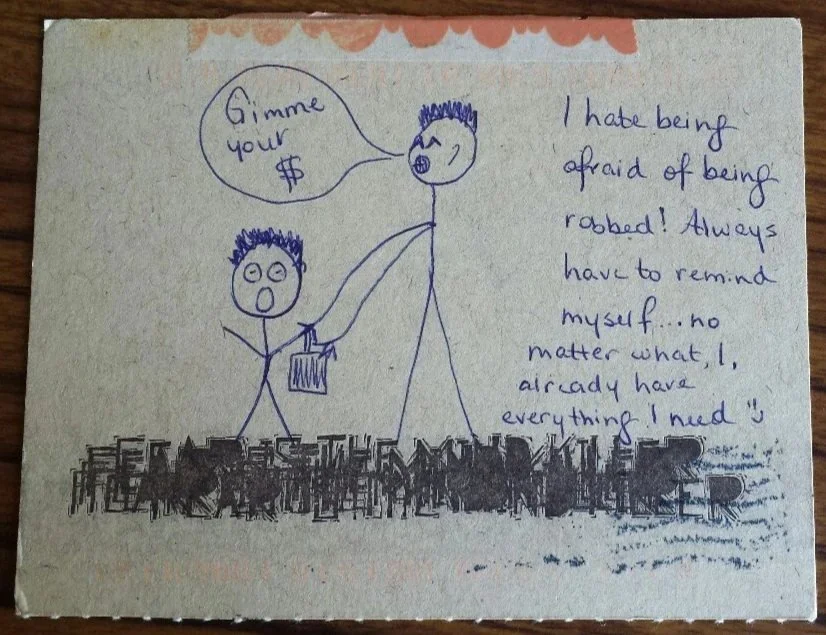 Gimme
your
$
I hate being
afraid of being
robbed! Always
have to remind
myself...no
matter what, I,
already have
everything I need
FEAR IS THE MIND KILLER